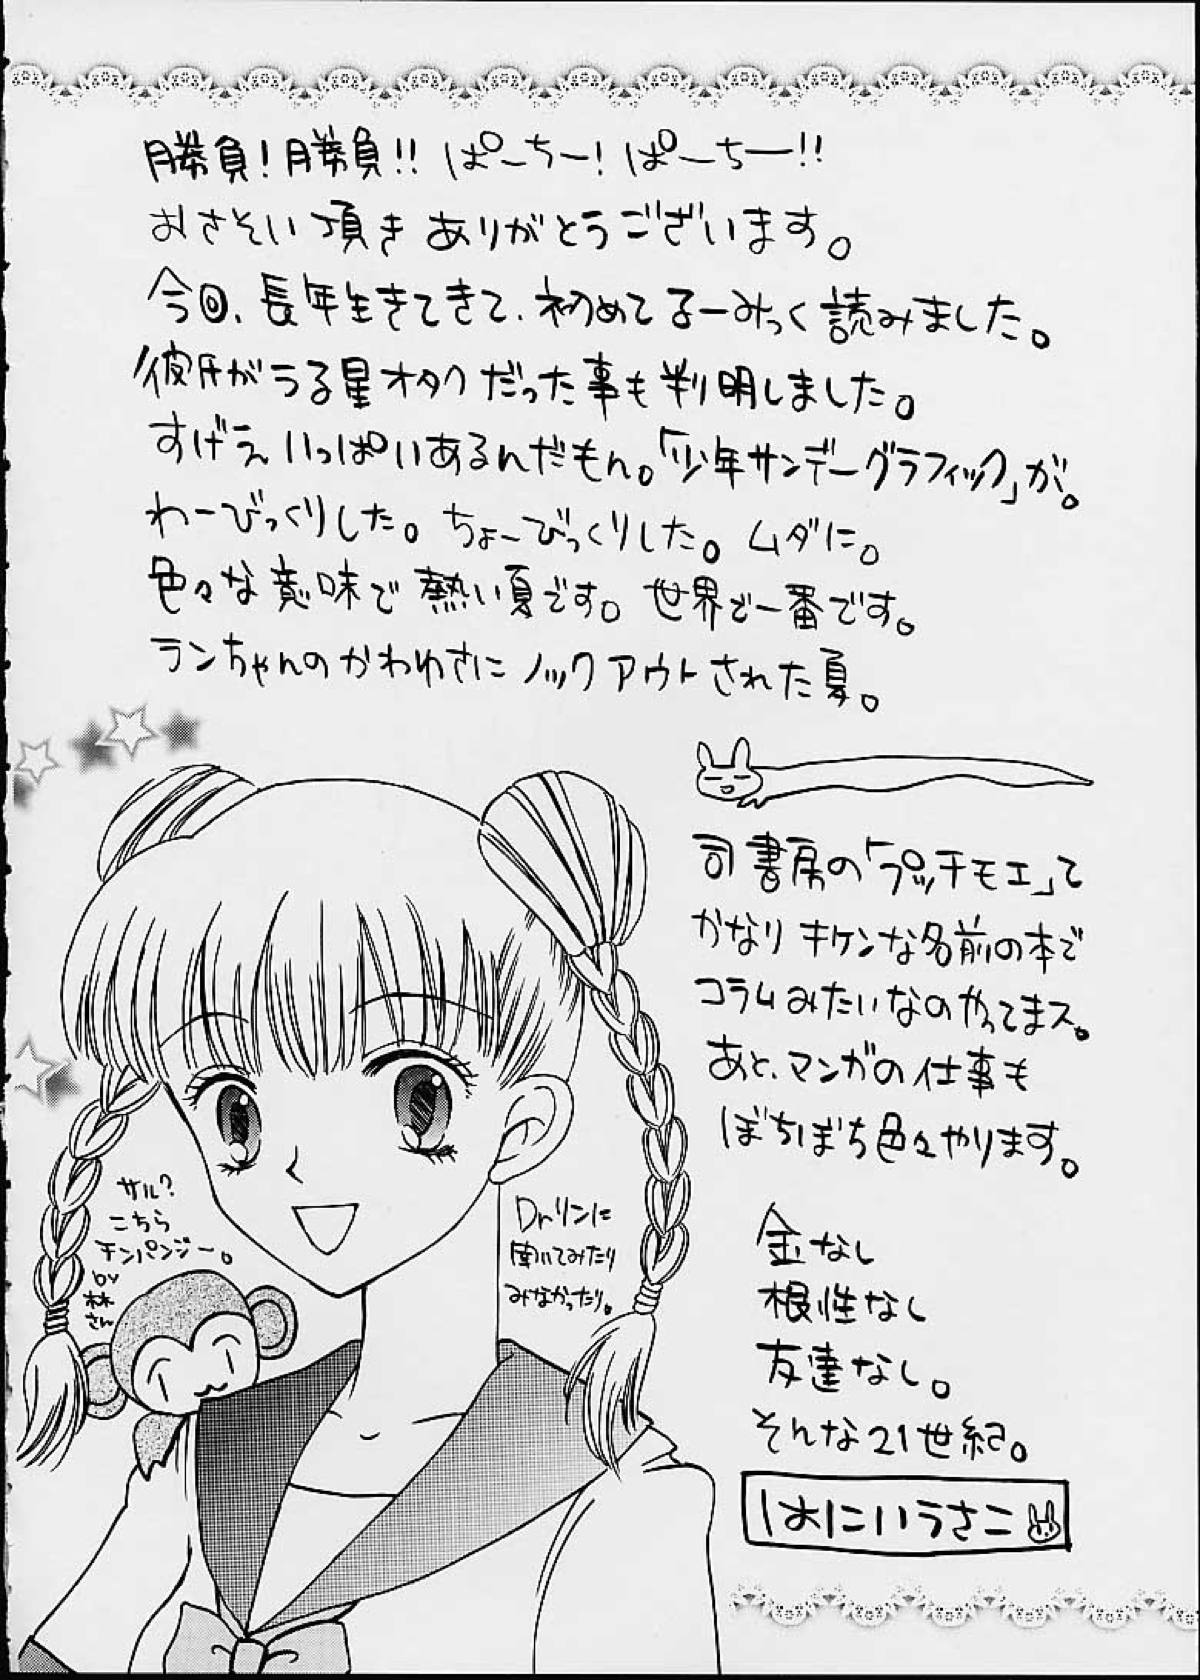 勝負!勝負!! ぱーちー!ぱーちー!!
おさそい頂きありがとうございます。
今回、長年生きてきて、初めてるーみっく読みました。
彼氏がうる星オタクだった事も判明しました。
すげえいっぱいあるんだもん。「少年サンデーグラフィック」が。
わーびっくりした。ちょーびっくりした。ムダに。
色々な意味で熱い夏です。世界で一番です。
ランちゃんのかわゆさにノックアウトされた夏。
司書房の「プッチモエ」て
かなりキケンな名前の本で
コラムみたいなのやってまス。
あと、マンガの仕事も
ぼちぼち色々やります。
サル?
こちら
チンパンジー。
by
林
さん
Dr.リンに
聞いてみたり
みなかったり。
金なし
根性なし
友達なし。
そんな21世紀。
はにいうさこ